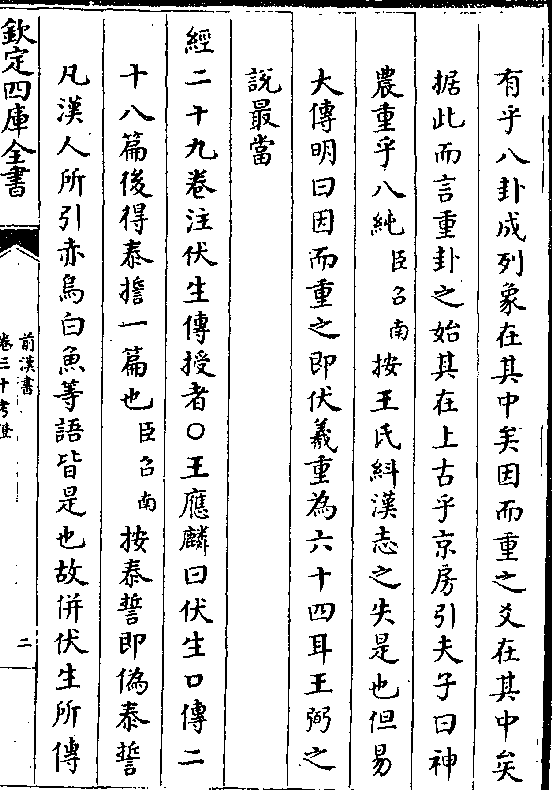 有乎八卦成列象在其中矣因而重之爻在其中矣
据此而言重卦之始其在上古乎京房引夫子曰神
農重乎八純臣召南按王氏糾漢志之失是也但易
大傳明曰因而重之即伏羲重為六十四耳王弼之
說最當
經二十九卷注伏生傳授者○王應麟曰伏生口傳二
十八篇後得泰擔一篇也臣召南按泰誓即偽泰誓
凡漢人所引赤烏白魚等語皆是也故併伏生所傳
欽定四庫全書
前漢書
卷三十考證
二